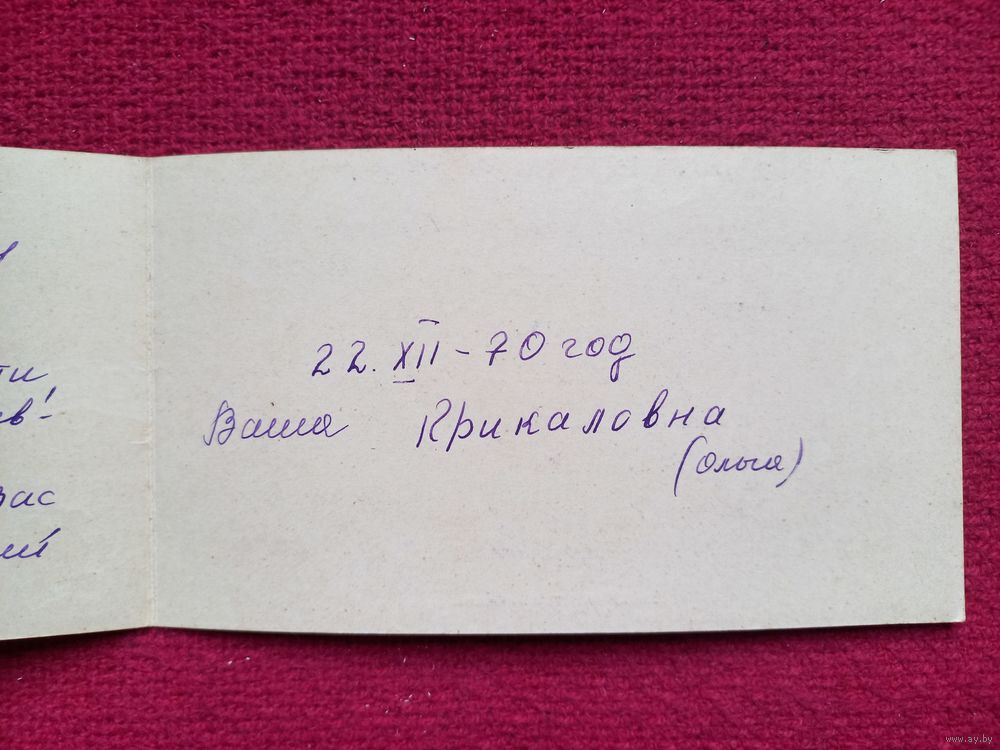 ти
ев!-
Вас
ший
22. XII - 70 год
Ваша Крикаловна
(Ольга)
www.ay.by